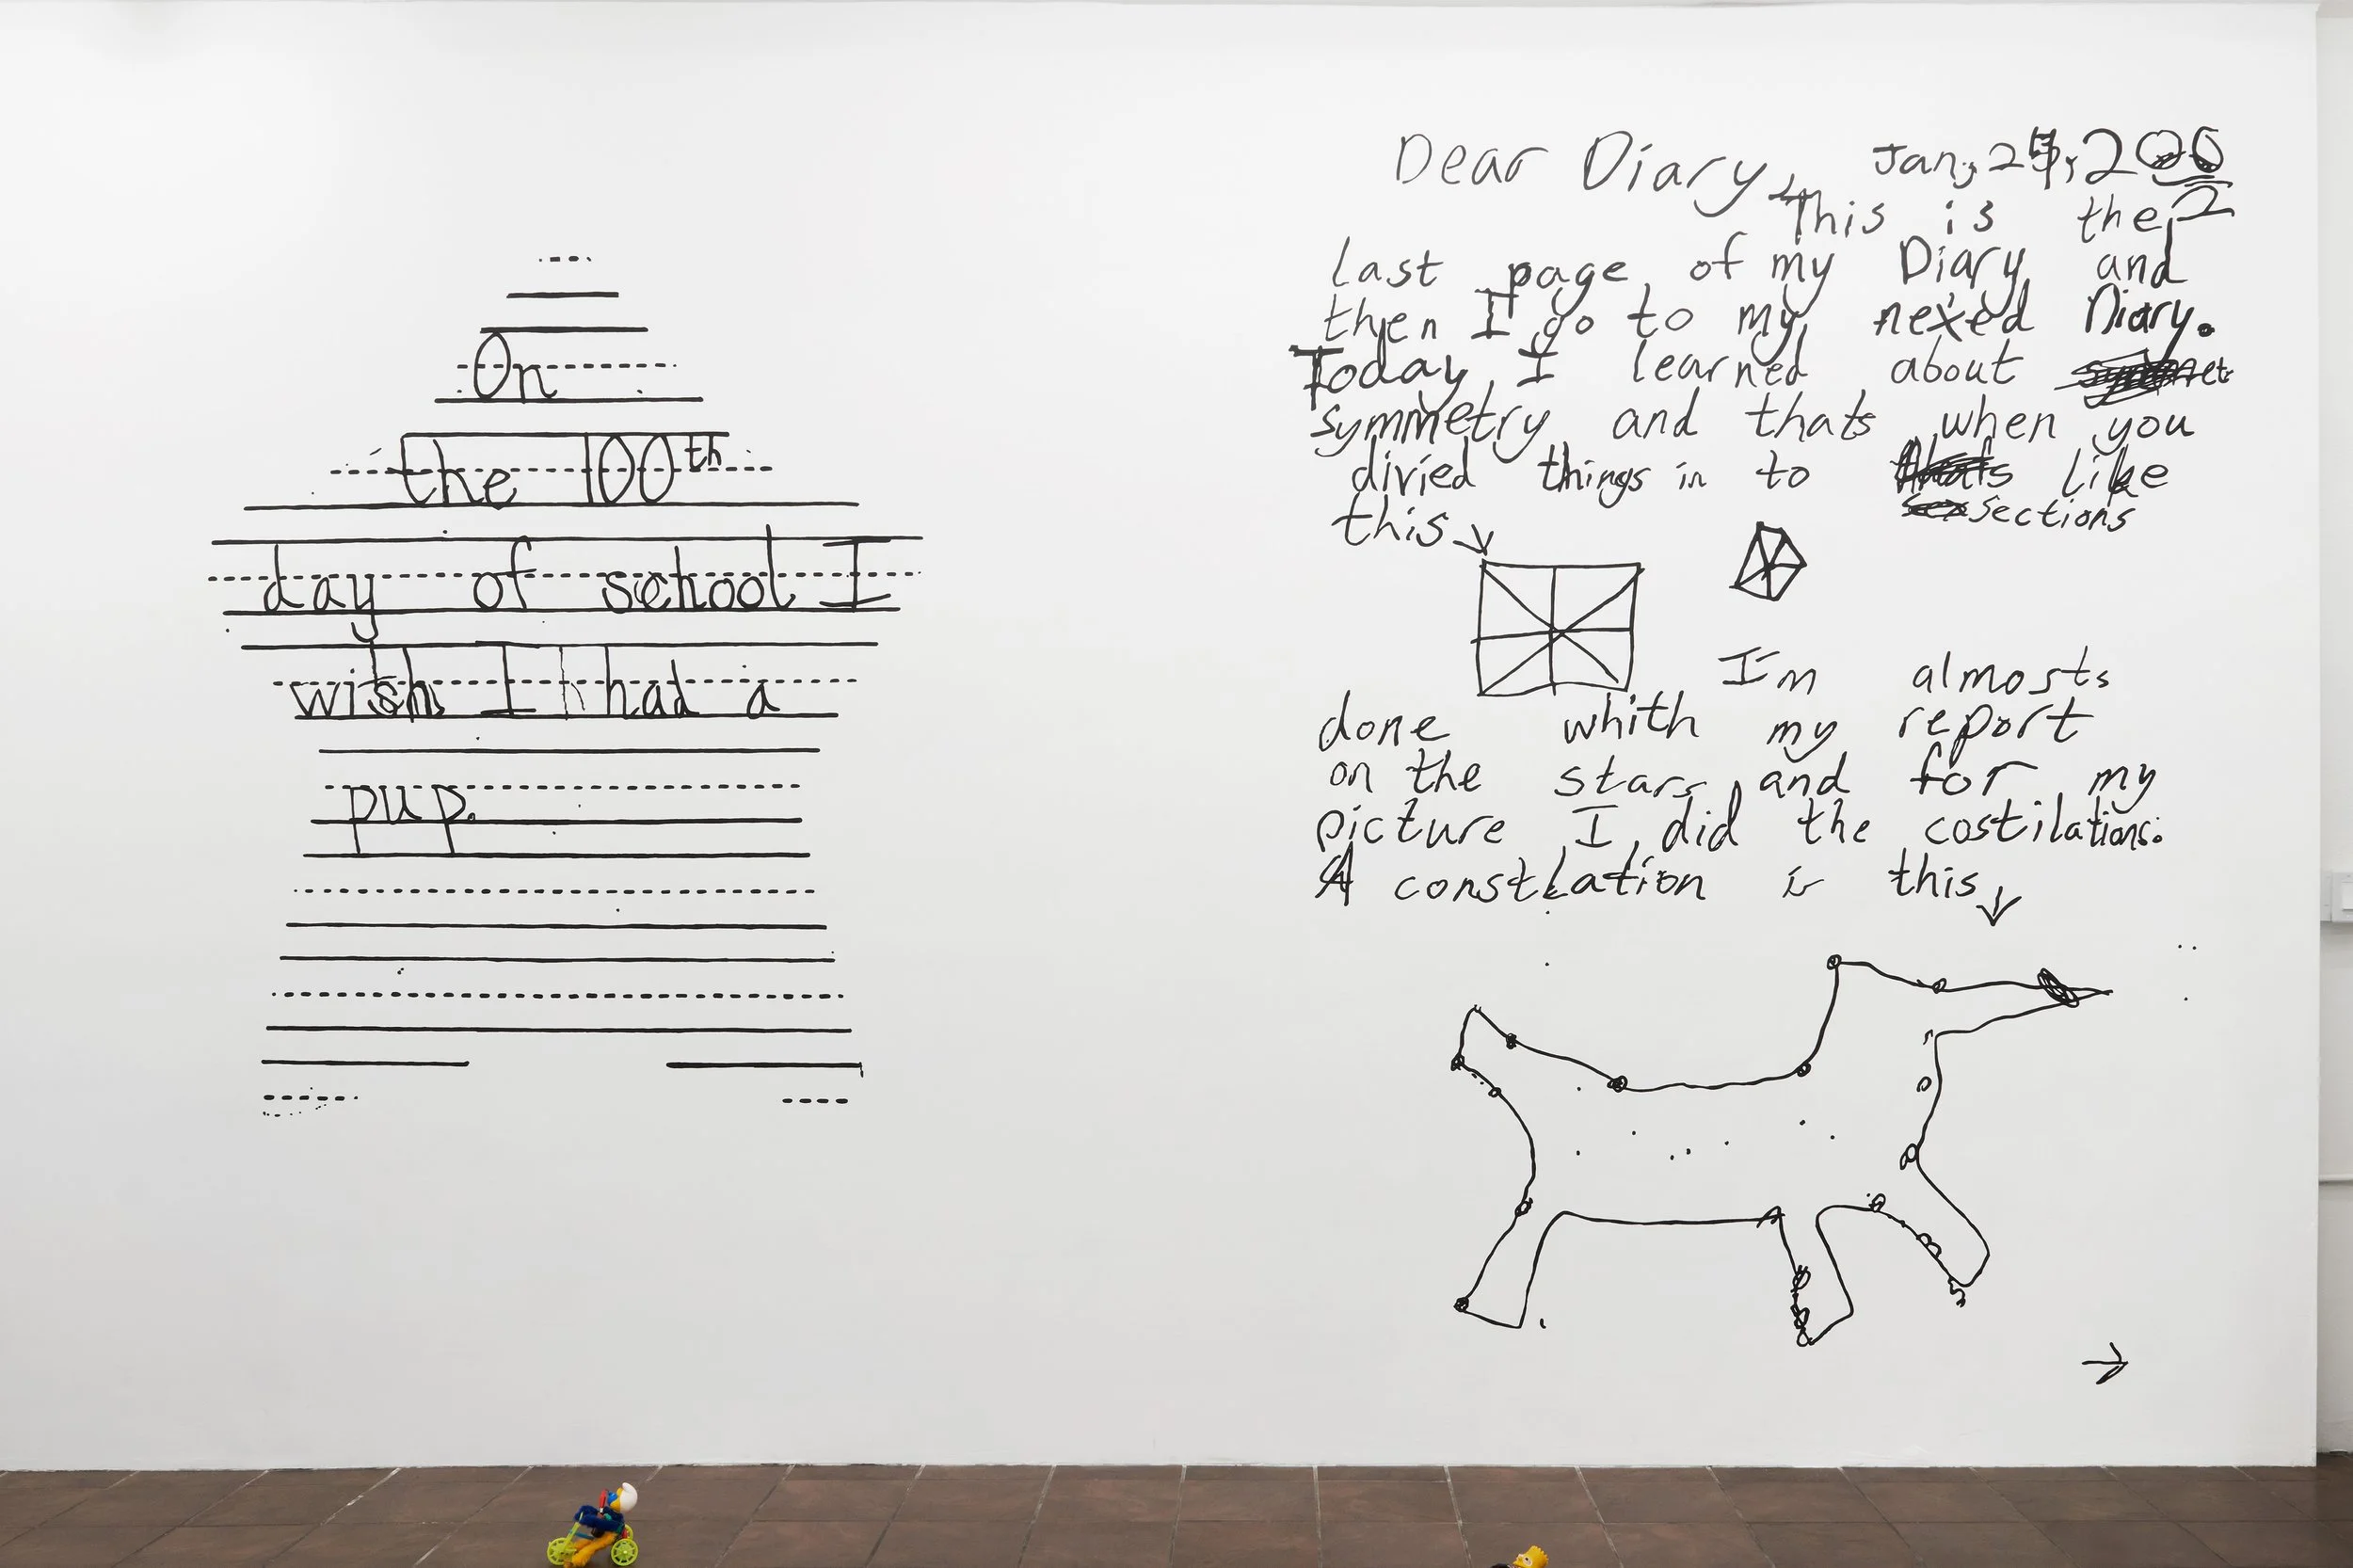 On
the 100th
day of school I
wish I h had a
pup.
Dear Diary, Jan, 25, 2002
This is the
last page of my Diary and
then I go to my nexed Diary.
Today I learned about
symmetry and thats when you
divied things in to like
sections
this
I'm almosts
done whith my report
on the stars and for my
picture I did the costilations.
A constlation is this